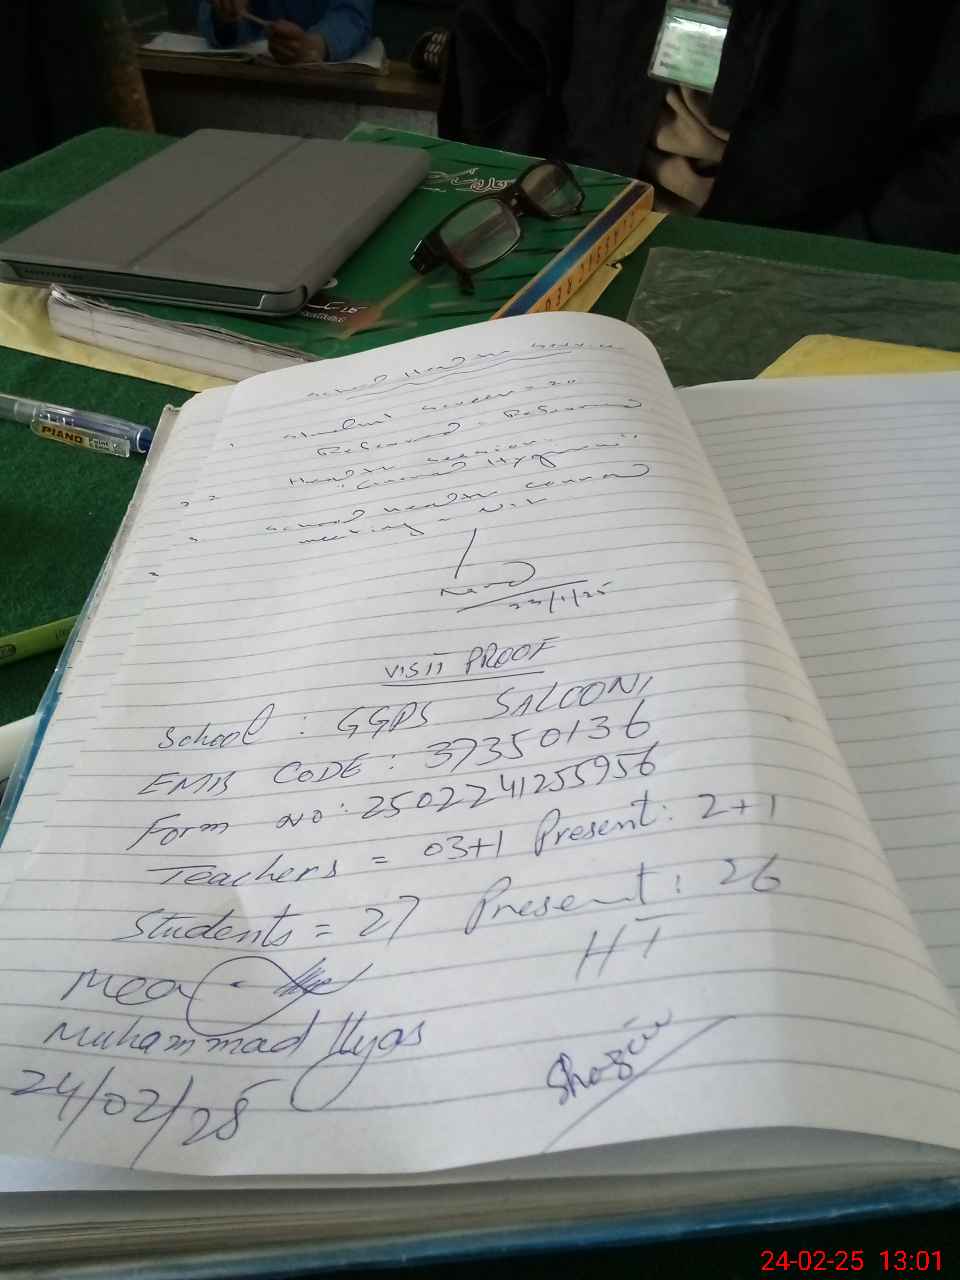 School Health Service
Student Screen = 20
Referred - Referred
2 Health session.
"General Hygiene"
3 School health council
meeting - Nil
23/1/25
VISIT PROOF
School : GGPS SALOONI
EMIS CODE : 37350136
Form no : 2502241255956
Teachers = 03+1 Present : 2+1
Students = 27 Present : 26
MEA
HT
Muhammad Ilyas
Shazia
24/02/25
PIANO
Point
24-02-25 13:01